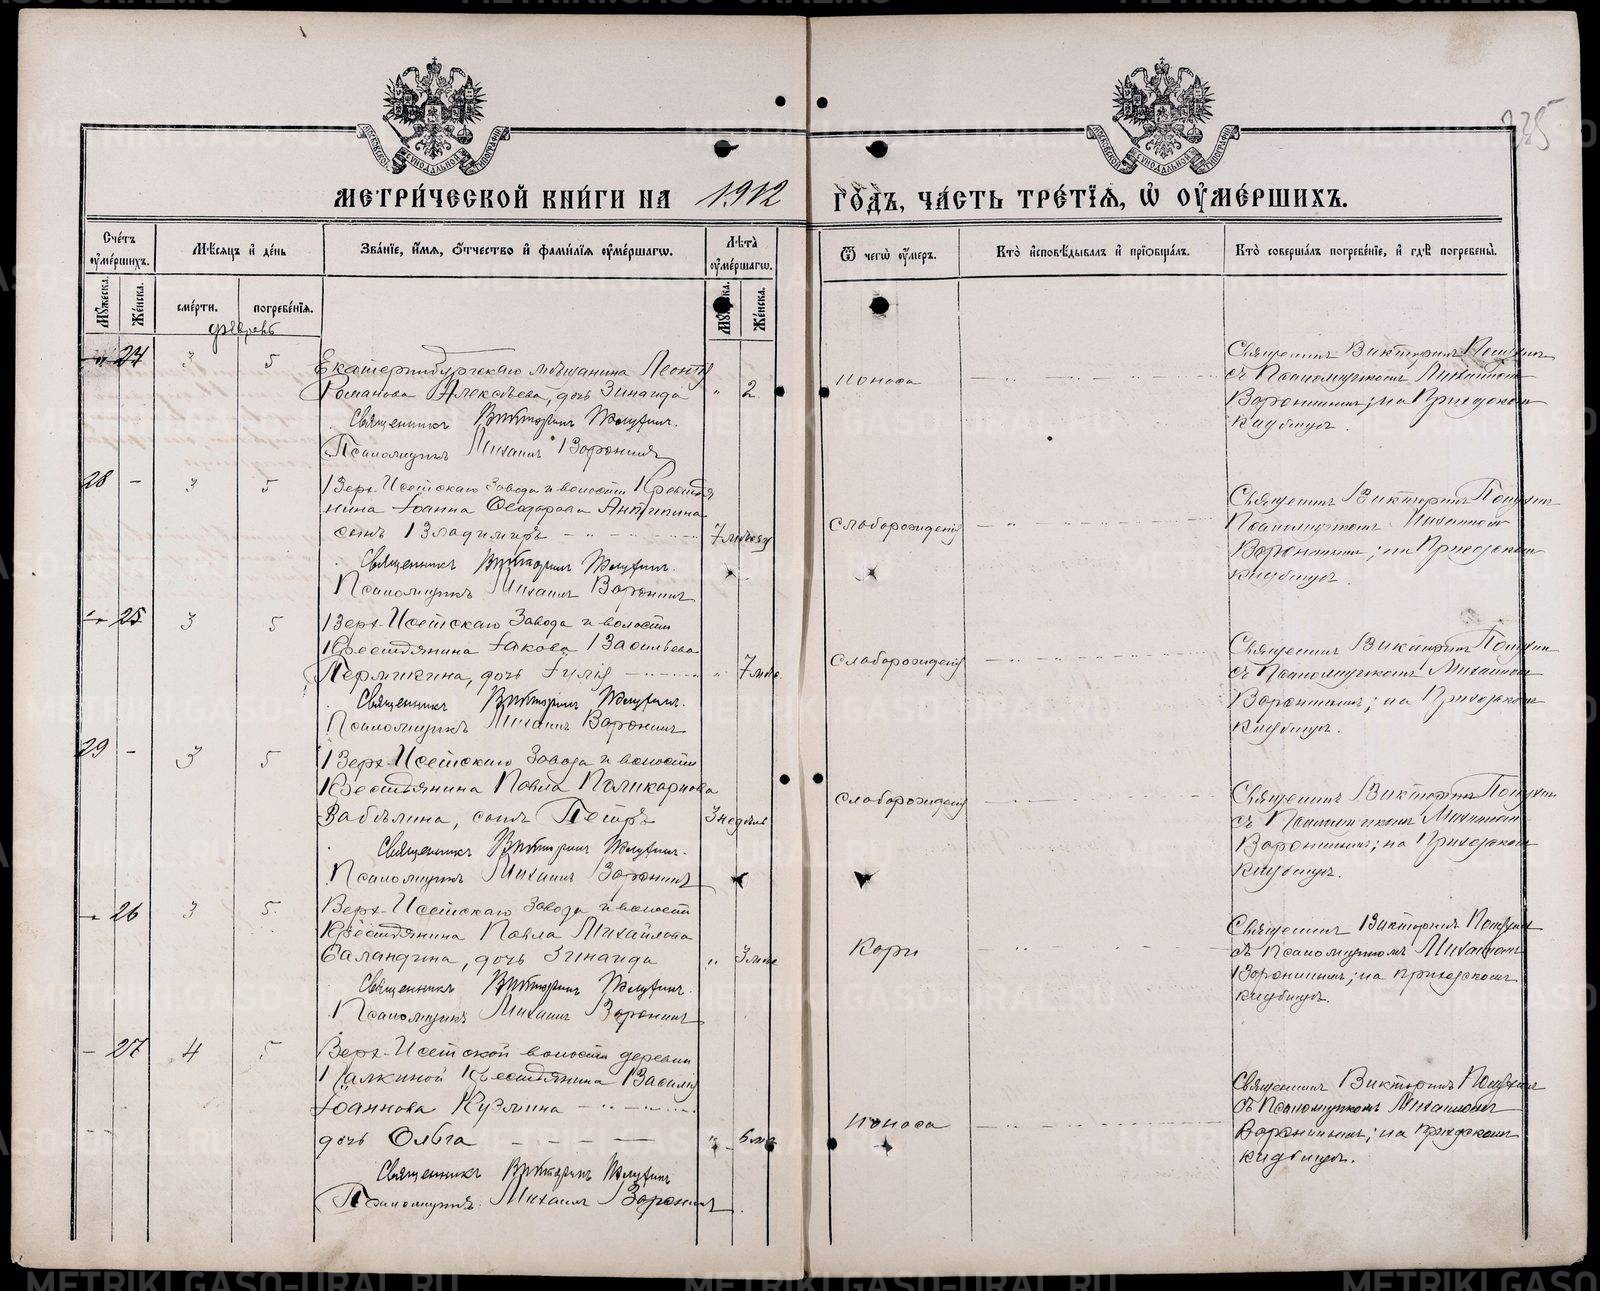 МЕТРИ́ЧЕСКОЙ КНИ́ГИ НА 1912 ГО́ДЪ, ЧА́СТЬ ТРЕ́ТІѦ, Ѡ҆ ОУ҆МЕ́РШИХЪ.
335
Сче́тъ оу҆ме́ршихъ.
Мѣ́сяцъ и҆ де́нь
Зва́нїе, и҆́мя, ѻ҆́тчество и҆ фами́лїя оу҆ме́ршагѡ.
Лѣ́та оу҆ме́ршагѡ.
Ѿ чегѡ̀ оу҆́меръ.
Кто̀ и҆сповѣ́дывалъ и҆ прїѡбща́лъ.
Кто̀ соверша́лъ погребе́нїе, и҆ гдѣ̀ погребены̀.
Мꙋ́жеска.
Же́нска.
сме́рти.
погребе́нїя.
Мꙋ́жеска.
Же́нска.
Февраль
24 3 5
Екатеринбургскаго мѣщанина Леонтія
Романова Алексѣева, дочь Зинаида " 2
Священникъ Викторинъ
Псаломщикъ Михаилъ Воронинъ
поноса
Священникъ Викторинъ
съ Псаломщикомъ Михаиломъ
Воронинымъ; на Приходскомъ
кладбищѣ.
28 - 3 5
Верх-Исетскаго завода и волости Крестья
нина Іоанна Ѳеодорова Антипина
сынъ Владимиръ 7 мѣсяц
Священникъ Викторинъ
Псаломщикъ Михаилъ Воронинъ
Слаборожденія
Священникъ Викторинъ
Псаломщикомъ Михаиломъ
Воронинымъ; на Приходскомъ
кладбищѣ.
25 3 5
Верх-Исетскаго Завода и волости
Крестьянина Іакова Васильева
Пермикина, дочь Іулія " 7 мѣс.
Священникъ Викторинъ
Псаломщикъ Михаилъ Воронинъ
Слаборожденія
Священникъ Викторинъ
съ Псаломщикомъ Михаиломъ
Воронинымъ; на Приходскомъ
кладбищѣ.
29 - 3 5
Верх-Исетскаго Завода и волости
Крестьянина Павла Поликарпова
Забѣлина, сынъ Петръ 3 недѣль
Священникъ Викторинъ
Псаломщикъ Михаилъ Воронинъ
Слаборожденія
Священникъ Викторинъ
съ Псаломщикомъ Михаиломъ
Воронинымъ; на Приходскомъ
кладбищѣ.
26 3 5
Верх-Исетскаго Завода и волости
Крестьянина Павла Михайлова
Баландина, дочь Зинаида " 3 мѣс
Священникъ Викторинъ
Псаломщикъ Михаилъ Воронинъ
Кори
Священникъ Викторинъ
съ Псаломщикомъ Михаиломъ
Воронинымъ; на приходскомъ
кладбищѣ.
- 27 4 5
Верх-Исетской волости деревни
Палкиной Крестьянина Василія
Іоаннова Кузмина
дочь Ольга " 6 мѣ
Священникъ Викторинъ
Псаломщикъ Михаилъ Воронинъ.
поноса
Священникъ Викторинъ
съ Псаломщикомъ Михаиломъ
Воронинымъ; на Приходскомъ
кладбищѣ.
METRIKI.GASO-URAL.RU